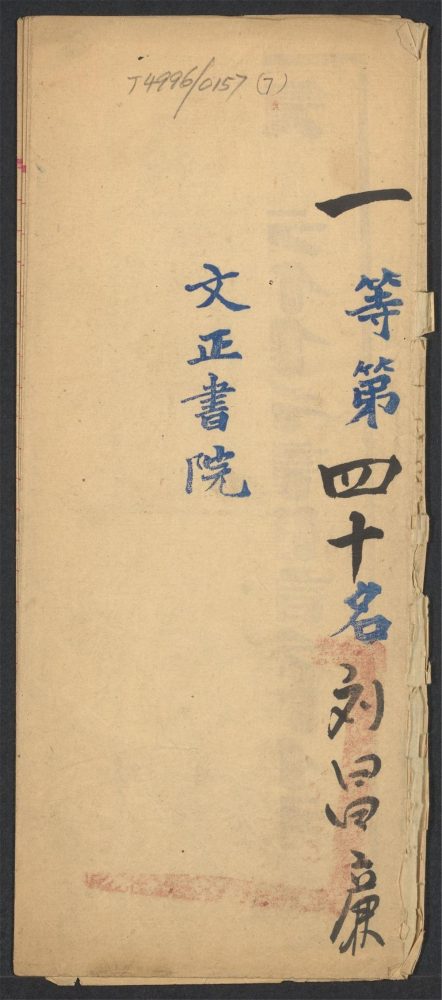 T4996/0157 (7)
一等第四十名刘昌
文正書院